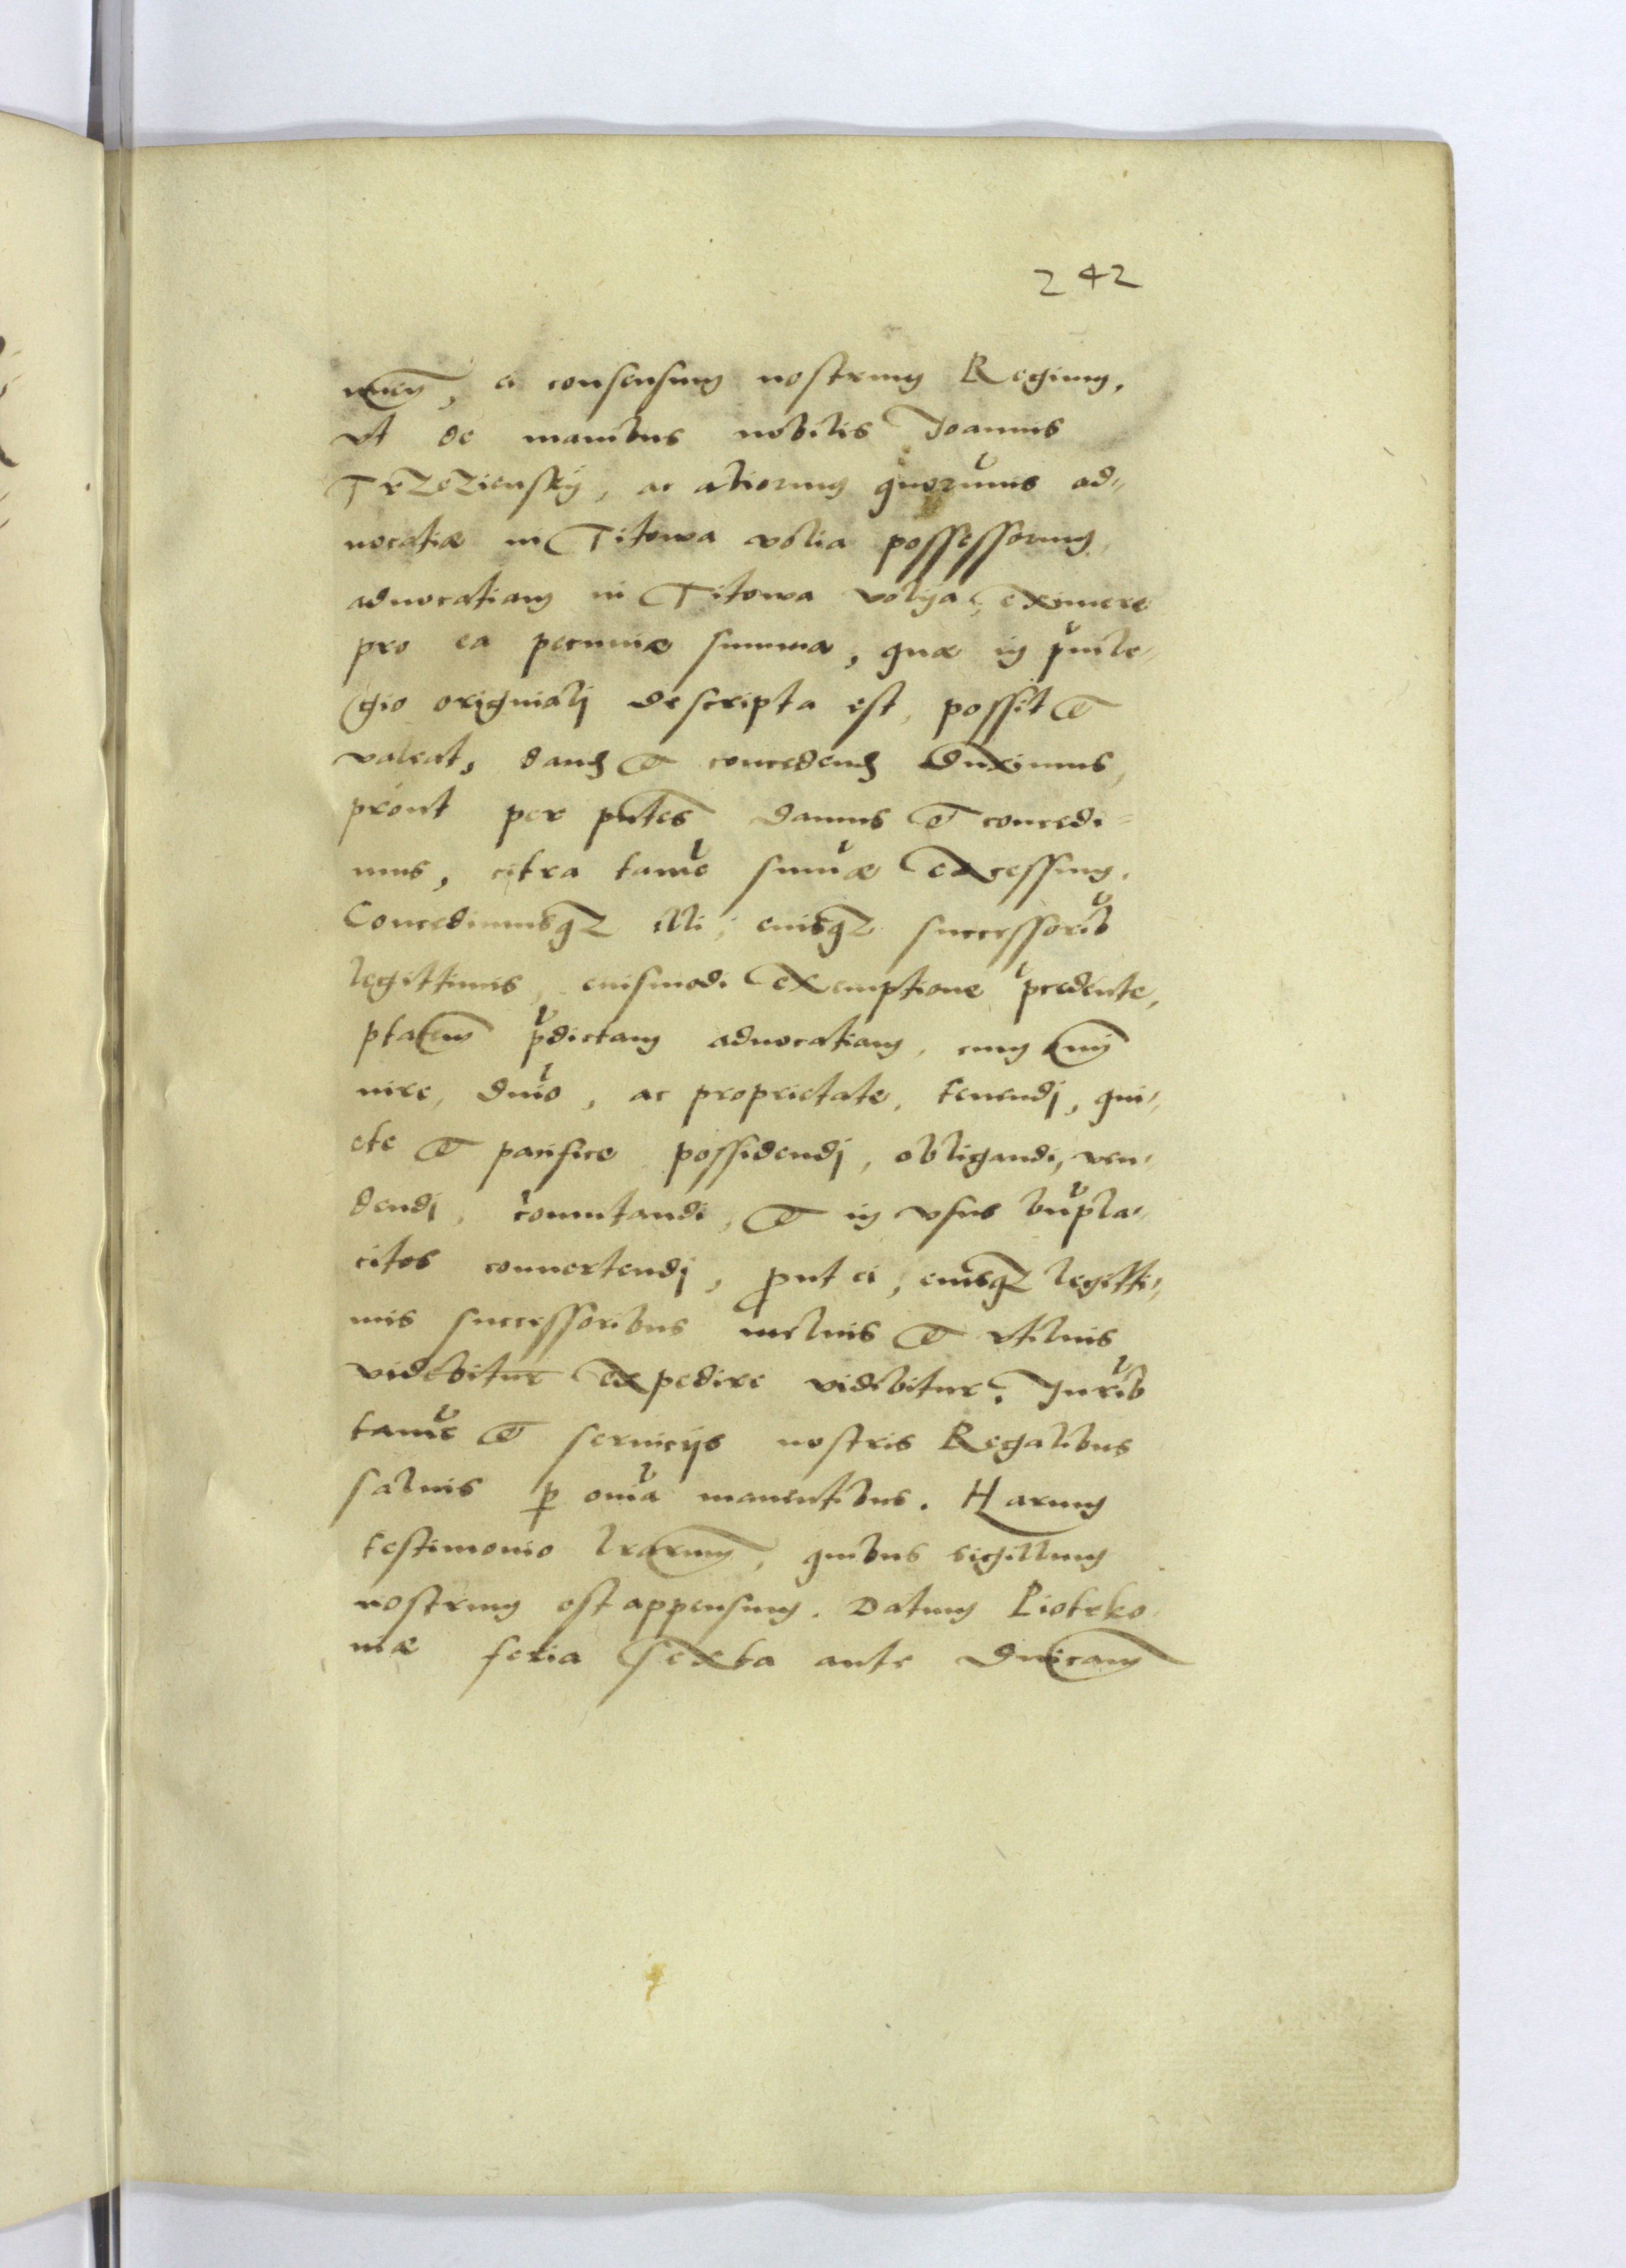 242
ei consensum nostrum Regium,
vt de manibus nobilis Joannis
Trzeziensky, ac aliorum quorumuis ad„
uocatiæ in Titowa volia possessorum,
aduocatiam in Titowa volija, eximere
pro ea pecuniæ summa, quæ in priuile„
gio originalj descripta est, possit et
valeat, dand et concedend duximus,
prout per pntes damus et concedi„
mus, citra tame sumæ excessum.
Concedimusqz illi, eiusqz successorib
legittimis, eiusmodi exemptione precedente,
pfatam pdictam aduocatiam, cum omni
iure, dnio, ac proprietate, tenendj, qui„
ete et pacifice possidendj, obligandi, ven„
dendj, comutandi, et in vsus bnpla„
citos conuertendj, put ei, eiusqz legitti„
mis successoribus melius et vtilius
videbitur expedire videbitur. Jurib
tame et seruicijs nostris Regalibus
saluis p omia manentibus. Harum
testimonio lrarum, quibus sigillum
nostrum est appensum. Datum Piotrko„
uiæ feria sexta ante dnicam